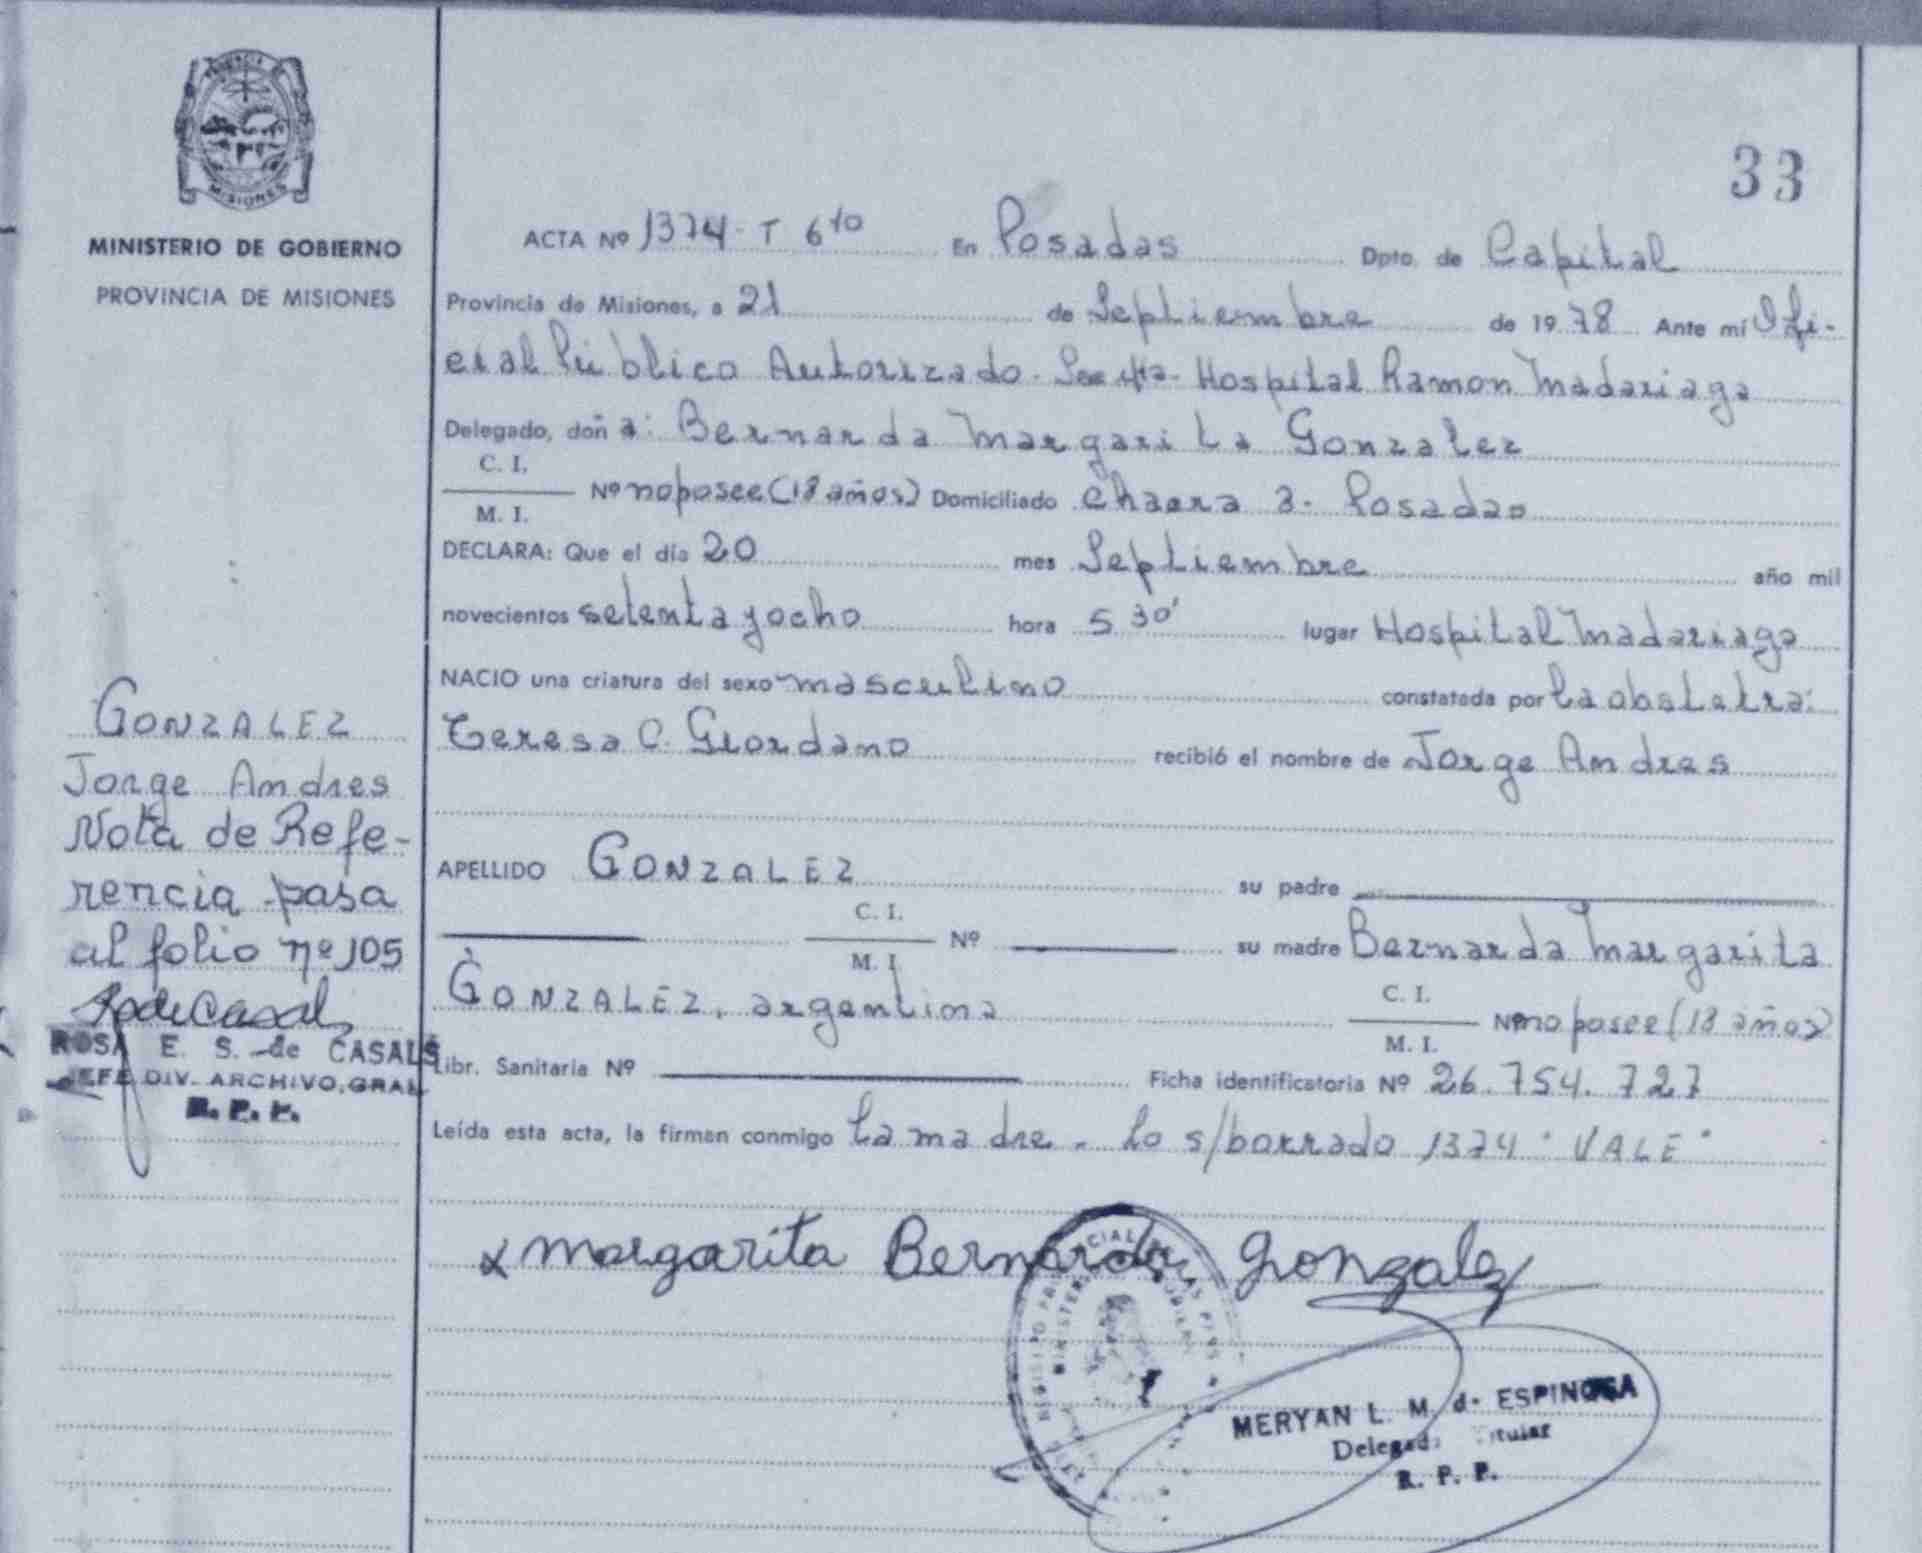 33
PROVINCIA DE
MISIONES
MINISTERIO DE GOBIERNO
PROVINCIA DE MISIONES
ACTA Nº 1374 - T 6to En Posadas Dpto. de Capital
Provincia de Misiones, a 21 de Septiembre de 1978 Ante mí Ofi-
cial Público Autorizado. Hospital Ramon Madariaga
Delegado, doña: Bernarda Margarita Gonzalez
C. I.
M. I. Nº no posee (18 años) Domiciliado Chacra 3. Posadas
DECLARA: Que el día 20 mes Septiembre año mil
novecientos setenta y ocho hora 5 30' lugar Hospital Madariaga
NACIO una criatura del sexo masculino constatada por la obstetra:
Teresa C. Giordano recibió el nombre de Jorge Andres
APELLIDO GONZALEZ su padre
C. I.
M. I. Nº su madre Bernarda Margarita
GONZALEZ, argentina C. I.
M. I. Nº no posee (18 años)
Libr. Sanitaria Nº Ficha identificatoria Nº 26.754.727
Leída esta acta, la firman conmigo la madre. Lo s/borrado 1374 "VALE"
x Margarita Bernarda Gonzalez
MERYAN L. M. de ESPINOSA
Delegada Titular
R. P. P.
GONZALEZ
Jorge Andres
Nota de Refe-
rencia pasa
al folio nº 105
ROSA E. S. de CASALS
JEFE DIV. ARCHIVO.GRAL
R. P. P.